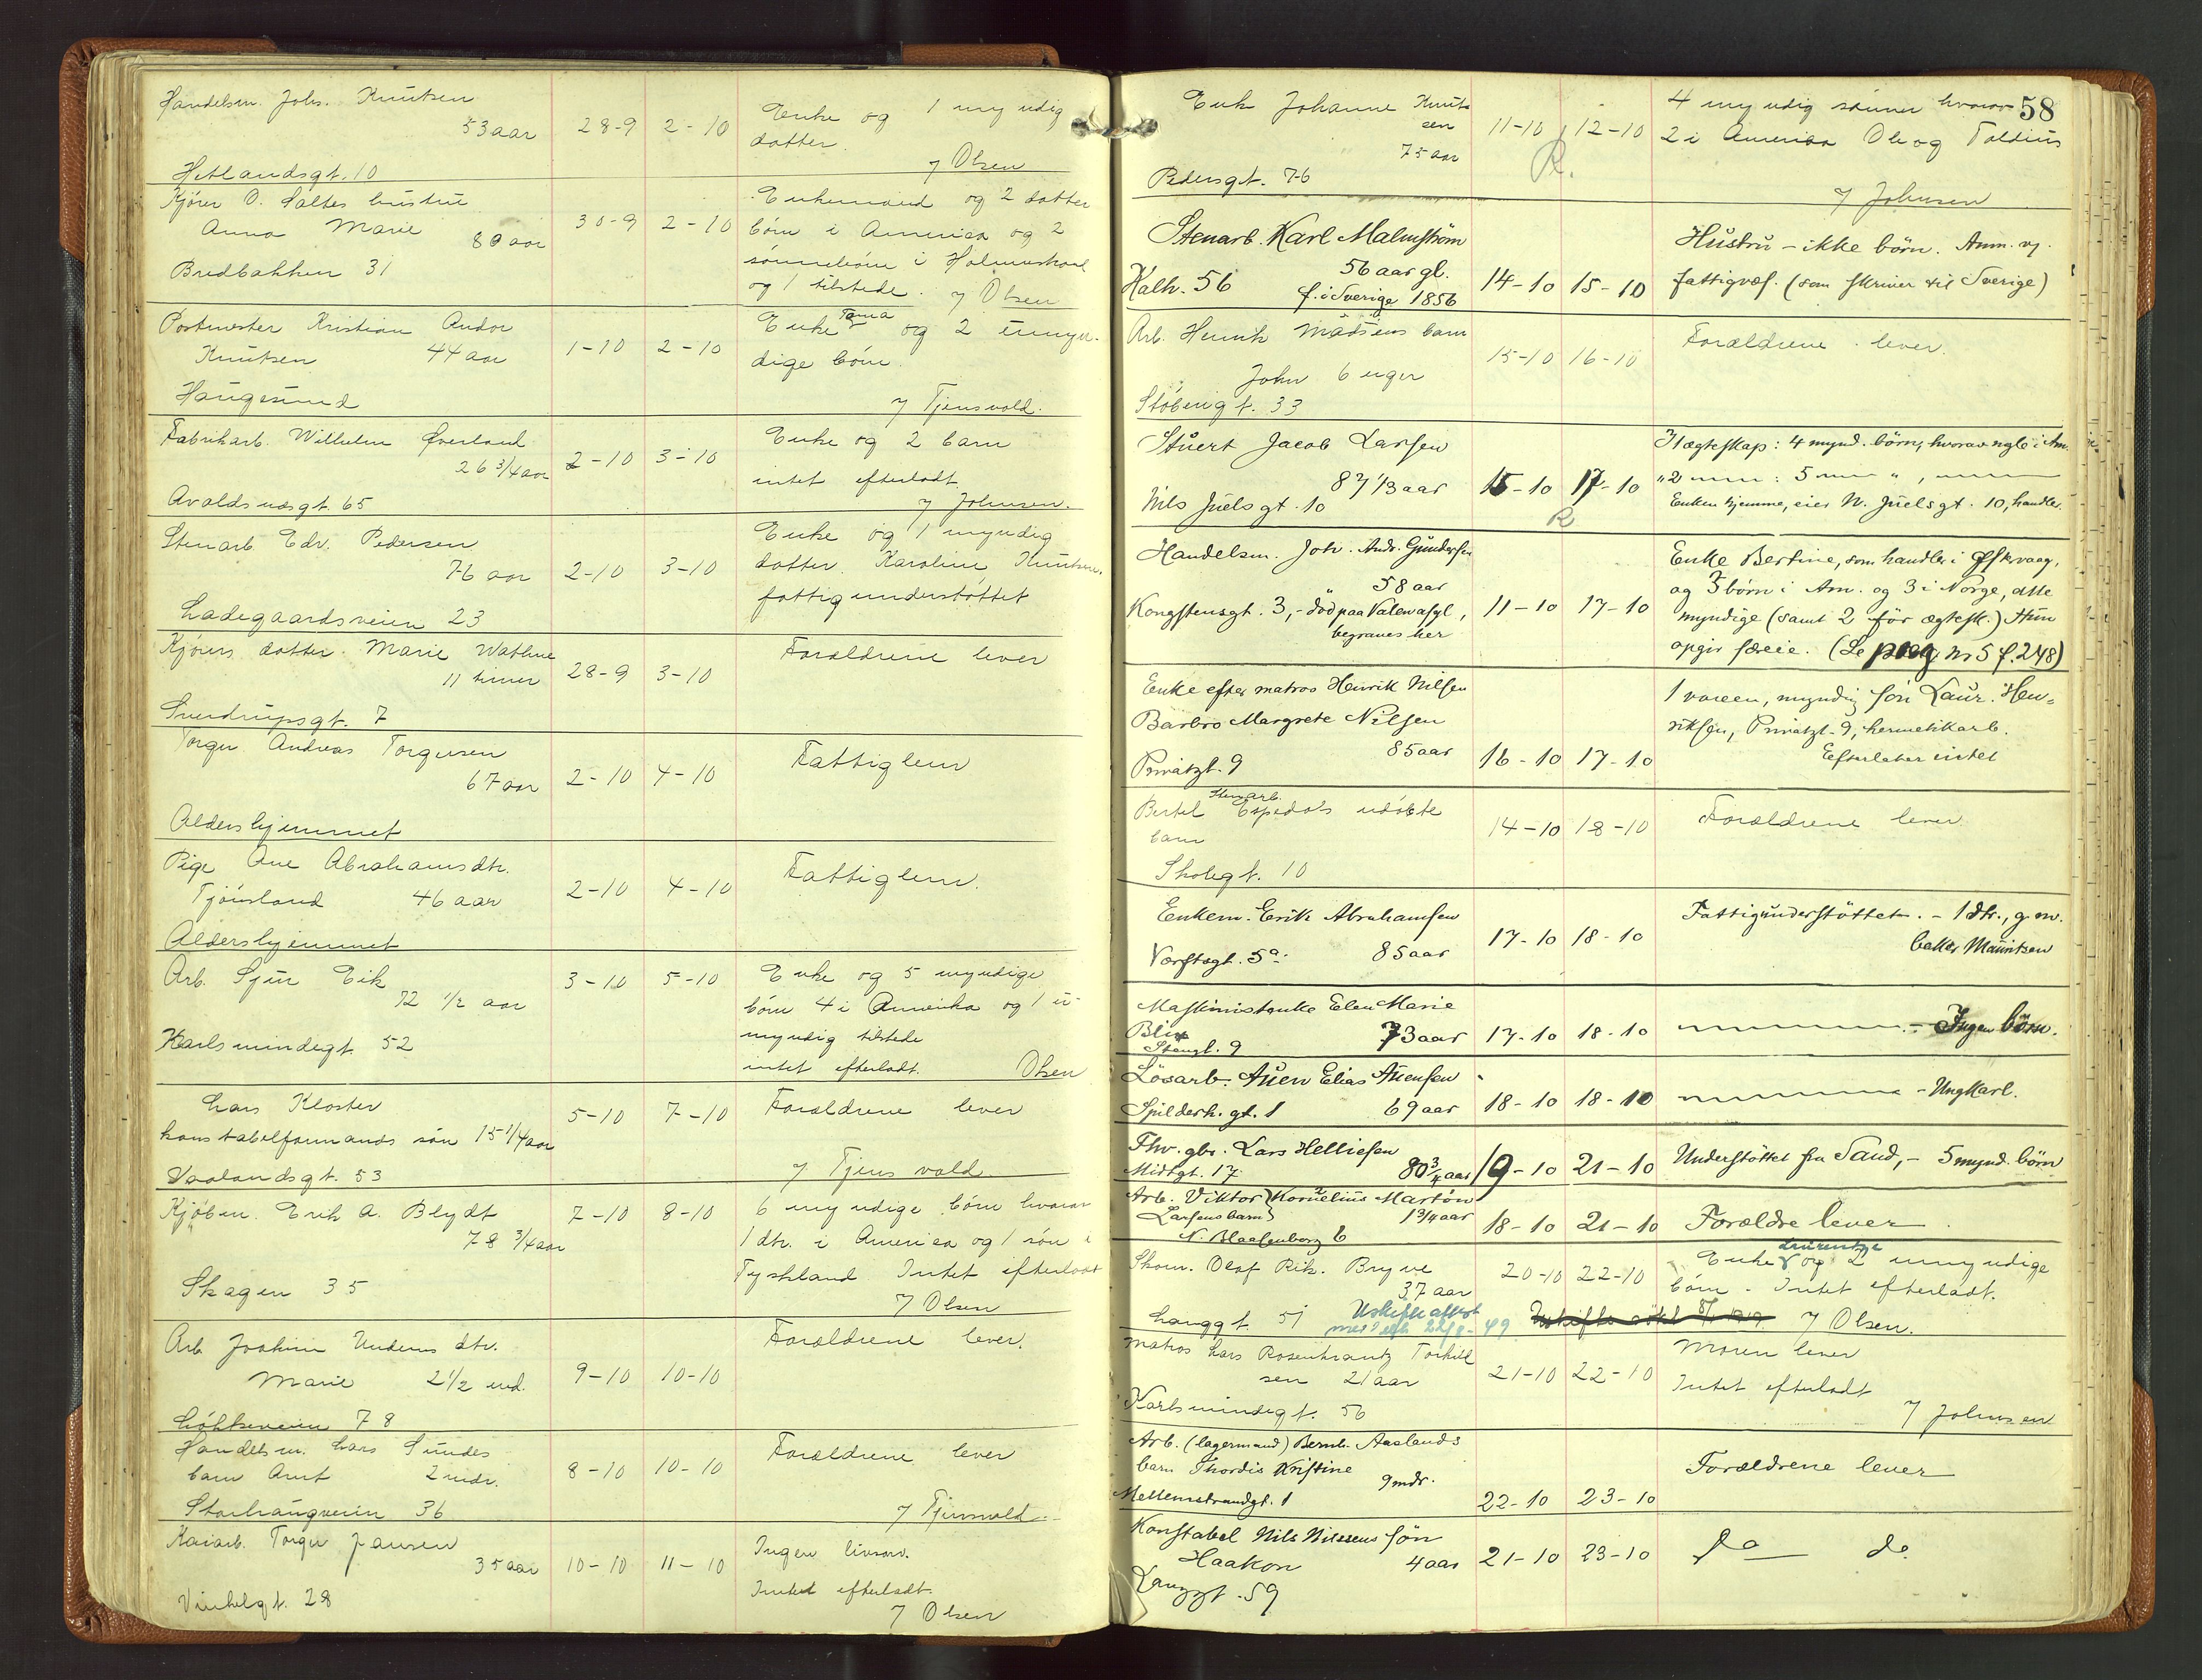 Handelsm. Johs. Knutsen
53 aar 28-9 2-10 Enke og 1 myndig
datter.
Hetlandsgt. 10 / Olsen
Kjører O. Saltes hustru
Anna Marie 80 aar 30-9 2-10 Enkemand og 2 datter
børn i America og 2
sønnebørn i
Bredbakken 31 og 1 tilstede. / Olsen
Postmester Kristian Andor
Knutsen 44 aar 1-10 2-10 Enke og 2 umyn-
dige børn.
Haugesund / Tjensvold.
Fabrikarb. Wilhelm Øverland
26 3/4 aar 2-10 3-10 Enke og 2 barn
intet efterladt.
Avaldsnesgt. 65 / Johnsen.
Stenarb. Edv. Pedersen
76 aar 2-10 3-10 Enke og 1 myndig
datter. Karoline Knutsen.
fattigunderstøttet
Ladegaardsveien 23
Kjørers datter. Marie Wathne
11 timer 28-9 3-10 Forældrene lever
Sverdrupsgt. 7
Torger Andreas Torgersen
67 aar 2-10 4-10 Fattiglem
Aldershjemmet
Pige Ane Abrahamsdtr.
Tjøirsland 46 aar 2-10 4-10 Fattiglem.
Aldershjemmet
Arb. Sjur Eik
72 1/2 aar 3-10 5-10 Enke og 5 myndige
børn 4 i Amerika og 1 u-
myndig tilstede
Karlsmindegt. 52 intet efterladt. Olsen
Lars Kloster
konstabelformands søn 15 1/4 aar 5-10 7-10 Forældrene lever
Vaalandsgt. 53 / Tjensvold.
Kjøbm. Erik A. Blydt
78 3/4 aar 7-10 8-10 6 myndige børn hvorav
1 dtr. i America og 1 søn i
Tyskland Intet efterladt
Skagen 35 / Olsen
Arb. Joakim Undems dtr.
Marie 2 1/2 md. 9-10 10-10 Forældrene lever.
Løkkeveien 78
Handelsm. Lars Sundes
barn Arnt 2 mdr. 8-10 10-10 Forældrene lever
Storhaugveien 36 / Tjensvold
Kaiarb. Torger Jansen
35 aar 10-10 11-10 Ingen livsarv.
Intet efterladt.
Vinkelgt. 28 / Olsen
58
Enke Johanne Knut-
sen
75 aar 11-10 12-10 4 myndig sønner hvorav
2 i America Ole og Toldius
R.
Pedersgt. 76 / Johnsen
Stenarb. Karl Malmstrøm
56 aar gl.
Kalh. 56 f. i Sverige 1856 14-10 15-10 Hustru - ikke børn. Anm. v.
fattigvæs. (som skriver til Sverige)
Arb. Henrik Madsens barn
John 6 uger 15-10 16-10 Forældrene lever.
Støberigt. 33
Stuert Jacob Larsen
87 1/3 aar
Nils Juels gt. 10 15-10 17-10 I 1 ægteskap: 4 mynd. børn, hvorav ngle i Am.
" 2 — : 5 — " , —
Enken hjemme, eier N. Juelsgt. 10, handler.
R
Handelsm. Joh. Andr. Gundersen
58 aar
Kongstensgt. 3, - død paa Valen asyl,
begraves her 11-10 17-10 Enke Bertine, som handler i
og 3 børn i Am. og 3 i Norge, alle
myndige (samt 2 før ægtesk.) Hun
opgir særeie. (Se nr 5 f. 248)
Enke efter matros Henrik Nilsen
Barbro Margrete Nilsen
85 aar
Privatgt. 9 16-10 17-10 1 voksen, myndig søn Laur. Hen-
riksen, Privatgt. 9, hermetikarb.
Efterlater intet
Stenarb.
Bertel Espedals udøbte
barn 14-10 18-10 Forældrene lever
Skolegt. 10
Enkem. Erik Abrahamsen
Verftsgt. 5a. 85 aar 17-10 18-10 Fattigunderstøttet. - 1 dtr., g. m.
baker Mauritzen
Maskinistenke Elen Marie
Blix 73 aar
Stengt. 9 17-10 18-10 — - Ingen børn.
Løsarb. Auen Elias Auensen
Spilderh. gt. 1 69 aar 18-10 18-10 — - Ungkarl.
Fhv. gbr. Lars Helliesen
Midtgt. 17 80 3/4 aar 19-10 21-10 Understøttet fra Sand, - 5 mynd. børn
Arb. Viktor Kornelius Marton
Larsens barn 1 3/4 aar
N. Blaasenborg 6 18-10 21-10 Forældre lever
Skom. Olaf Rik. Bryne
37 aar 20-10 22-10 Enke og 2 umyndige
børn - Intet efterladt.
Langgt. 51 Uskifteattest
22/8-49 / Olsen.
Matros Lars Rosenkrantz Torkild
sen 21 aar 21-10 22-10 Moren lever
Intet efterladt
Karlsmindegt. 56 / Johnsen
Arb. (lagermand) Bernh. Aaslands
barn Thordis Kristine 9 mdr.
Mellemstrandgt. 1 22-10 23-10 Forældrene lever
Konstabel Nils Nilssens søn
Haakon 4 aar 21-10 23-10 Do — do
Langgt. 59